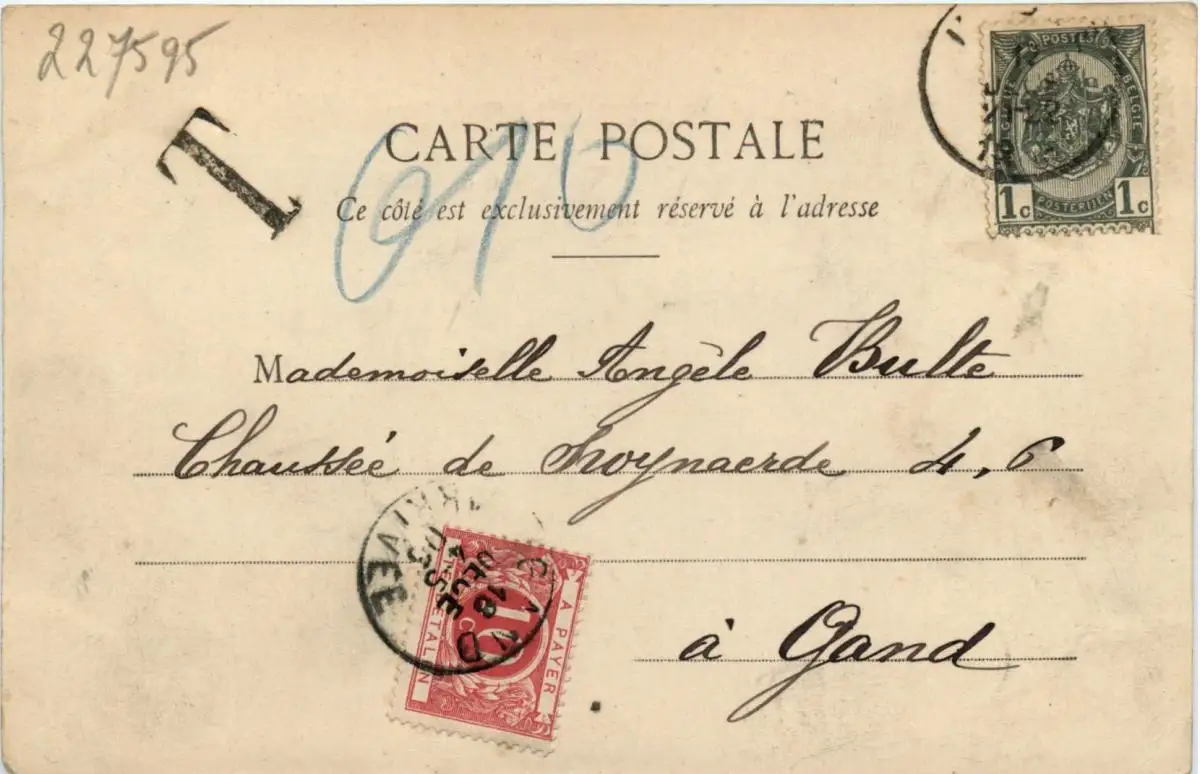 227595
T
CARTE POSTALE
010
Ce côté est exclusivement réservé à l'adresse
POSTES
BELGIË
POSTERIJEN
1c 1c
Mademoiselle Angèle Bulte
Chaussée de Swynaerde 4, 6
ARRIVÉE
DECE
18
10
A PAYER
TE BETALEN
à Gand